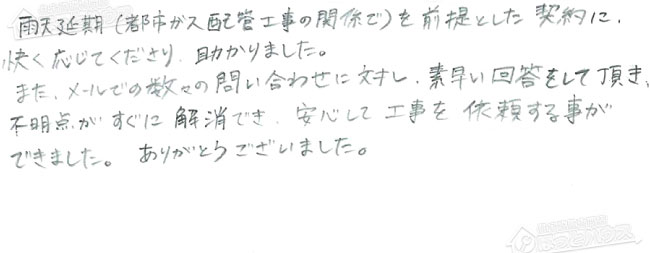 雨天延期（都市ガス配管工事の関係で）を前提とした契約に、
快く応じてくださり、助かりました。
また、メールでの数々の問い合わせに対し、素早い回答をして頂き、
不明点がすぐに解消でき、安心して工事を依頼する事が
できました。ありがとうございました。